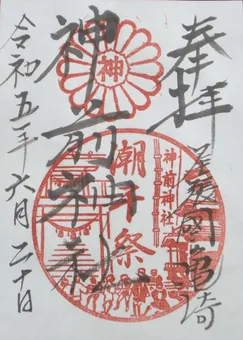 奉拝
尾張國亀崎
神
神前神社
神前神社
潮干祭
令和五年六月二十日